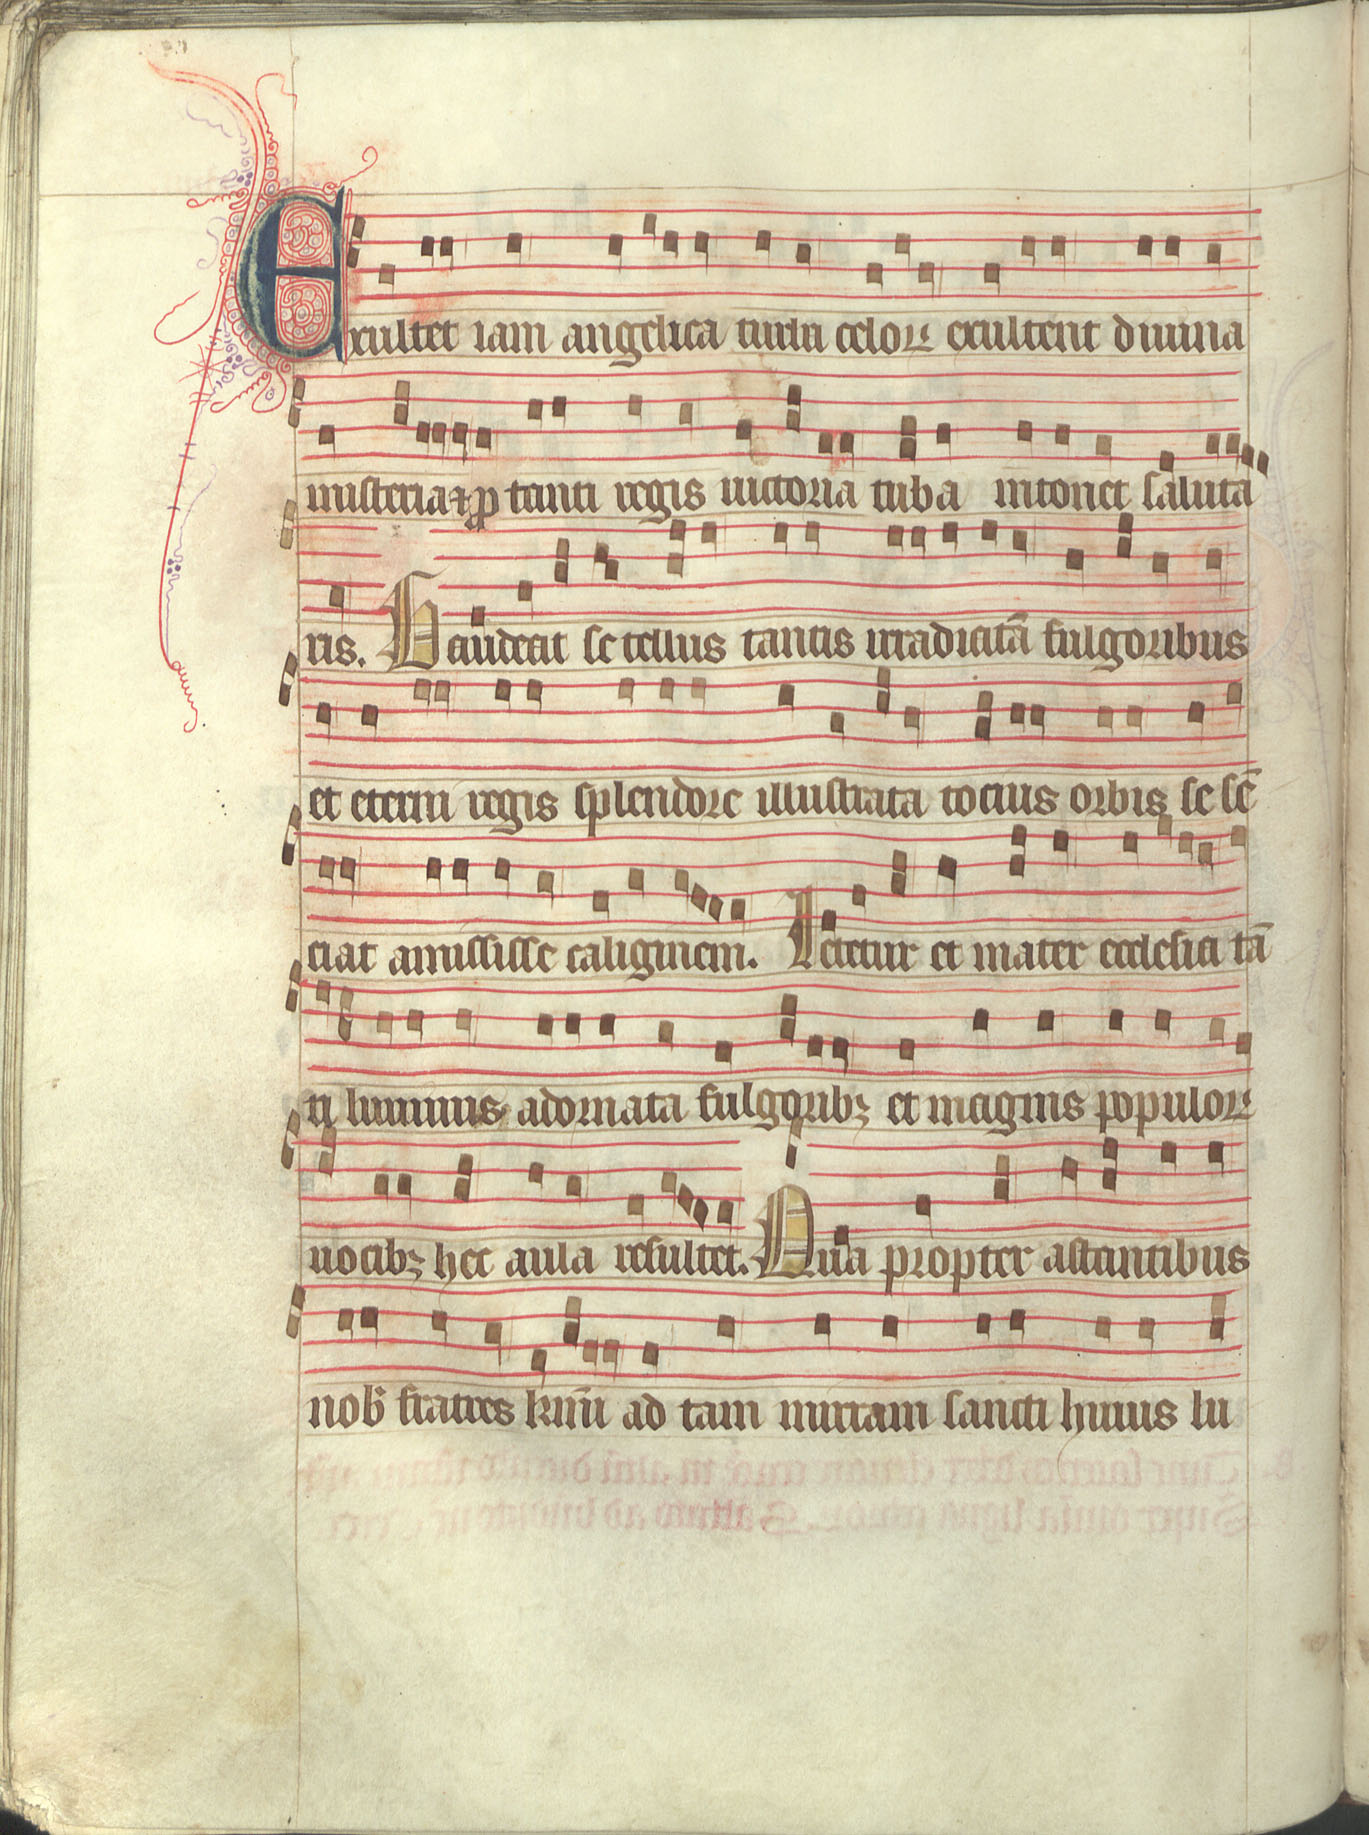 Exultet iam angelica turba celoꝝ exultent diuina
misteria ⁊ ꝓ tanti regis uictoria tuba intonet saluta
ris. Gaudeat se tellus tantis irradiatā fulgoribus
et eterni regis splendore illustrata tocius orbis se sē
ciat amisisse caliginem. Letetur et mater ecclesia tā
ti luminis adornata fulgoribꝫ et magnis populoꝝ
uocibꝫ hec aula resultet. Qua propter astantibus
nob̄ fratres kr̄mi ad tam miram sancti huius lu